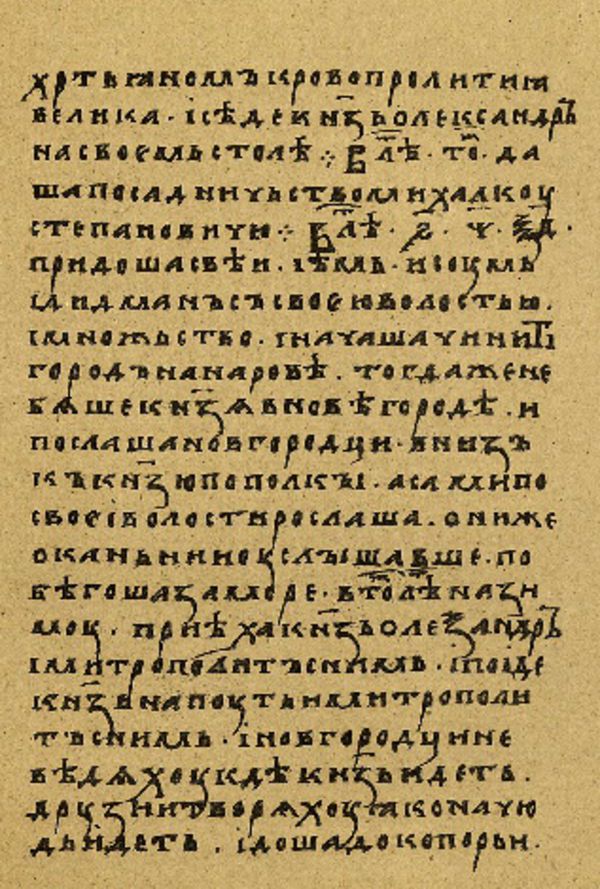 хртьӕномъ кровопролитиӕ
велика · ı сѣде кн҃зь олександръ
на своемь столѣ ⁘ В лѣ҇ · то҇ · да
ша посадничьство михалкоу
степановичю ⁘ В лѣ҇ · ҂ѕ҃ · ѱ҃ · ѯд҃ ·
придоша свѣи · ı ѣмь · и соумь
ı дидманъ съ своею волостью ·
ı множьство · ı начаша чинити
городъ на наровѣ · тогда же не
бѧше кнѧзѧ в новѣгородѣ · и
послаша новгородци в низъ
къ кн҃зю по полкы · а сами по
своеı волости рослаша · они же
оканьнии оуслышавше · по
бѣгоша за море · в то҇ лѣ҇ на зи
моу · приѣха кн҃зь олеѯандръ
ı митрополитъ с нимь · ı поıде
кн҃зь на поуть и митрополи
тъ с нимь · ı новгородци не
вѣдѧхоу кдѣ кн҃зь идеть ·
друзии творѧхоу ӕко на чю
дь идеть · ı дошадо копорьи ·